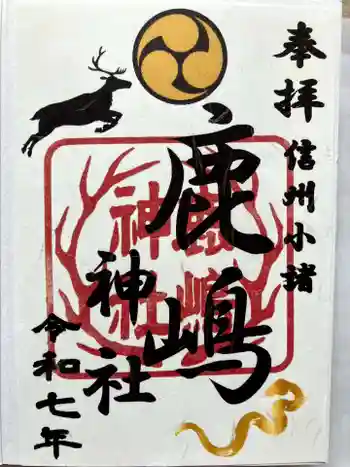 奉拝
信州小諸
鹿嶋
神社
鹿嶋
神社
令和七年